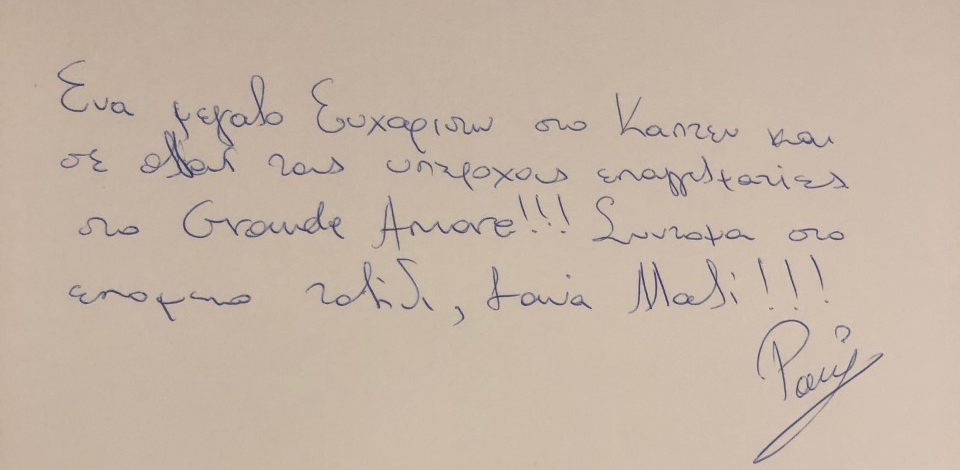 Ενα μεγαλο Ευχαριστω στο Καπτεν και
σε ολους τους υπεροχους επαγγελματιες
στο Grande Amore!!! Συντομα στο
επομενο ταξιδι, ξανα Μαζι!!!